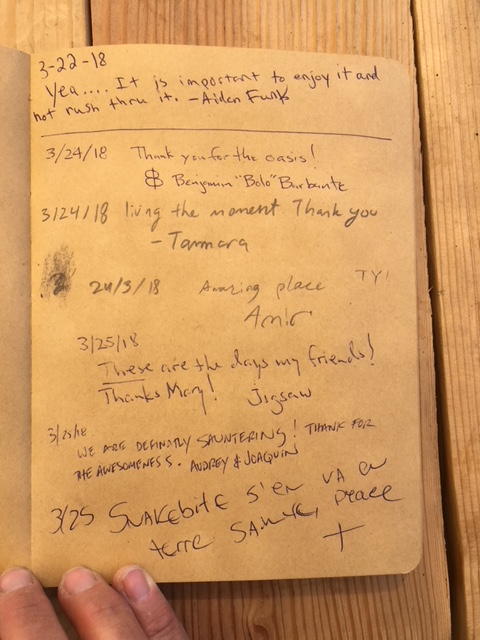 3-22-18
Yea.... It is important to enjoy it and
not rush thru it. -Aiden Funk
3/24/18 Thank you for the oasis!
Benjamin "Bolo" Burbante
3/24/18 living the moment Thank you
- Tammara
24/3/18 Amazing place TY!
Amir
3/25/18
These are the days my friends!
Thanks Mary! Jigsaw
3/25/18
WE ARE DEFINATLY SAUNTERING! THANK FOR
THE AWESOMENESS. AUDREY & JOAQUIN
3/25 SNAKEBITE s'en va en
terre peace